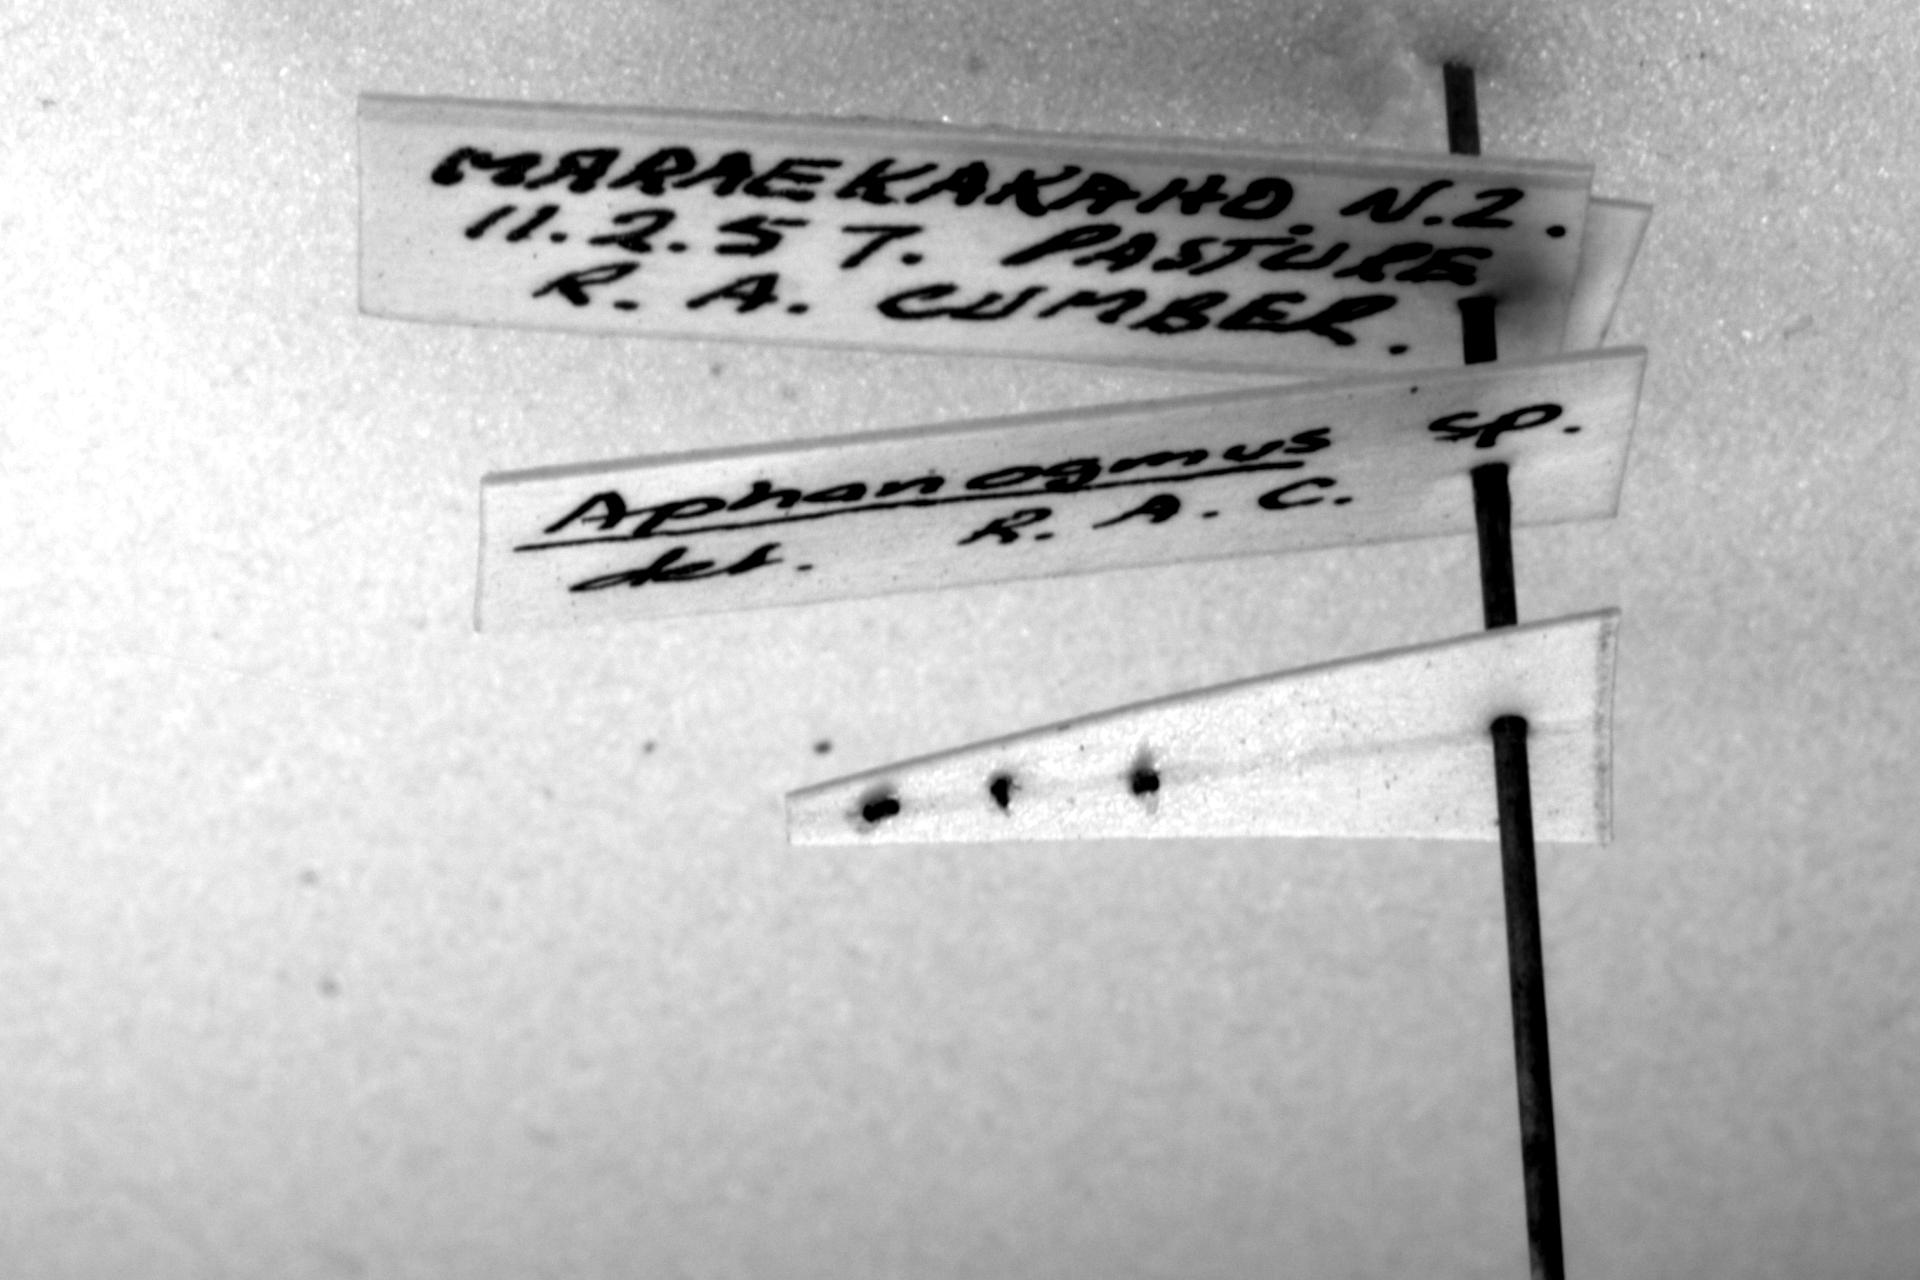 MARAEKAKAHO. N.Z.
11.2.57. PASTURE
R. A. CUMBER.
Aphanogmus sp.
det. R. A. C.